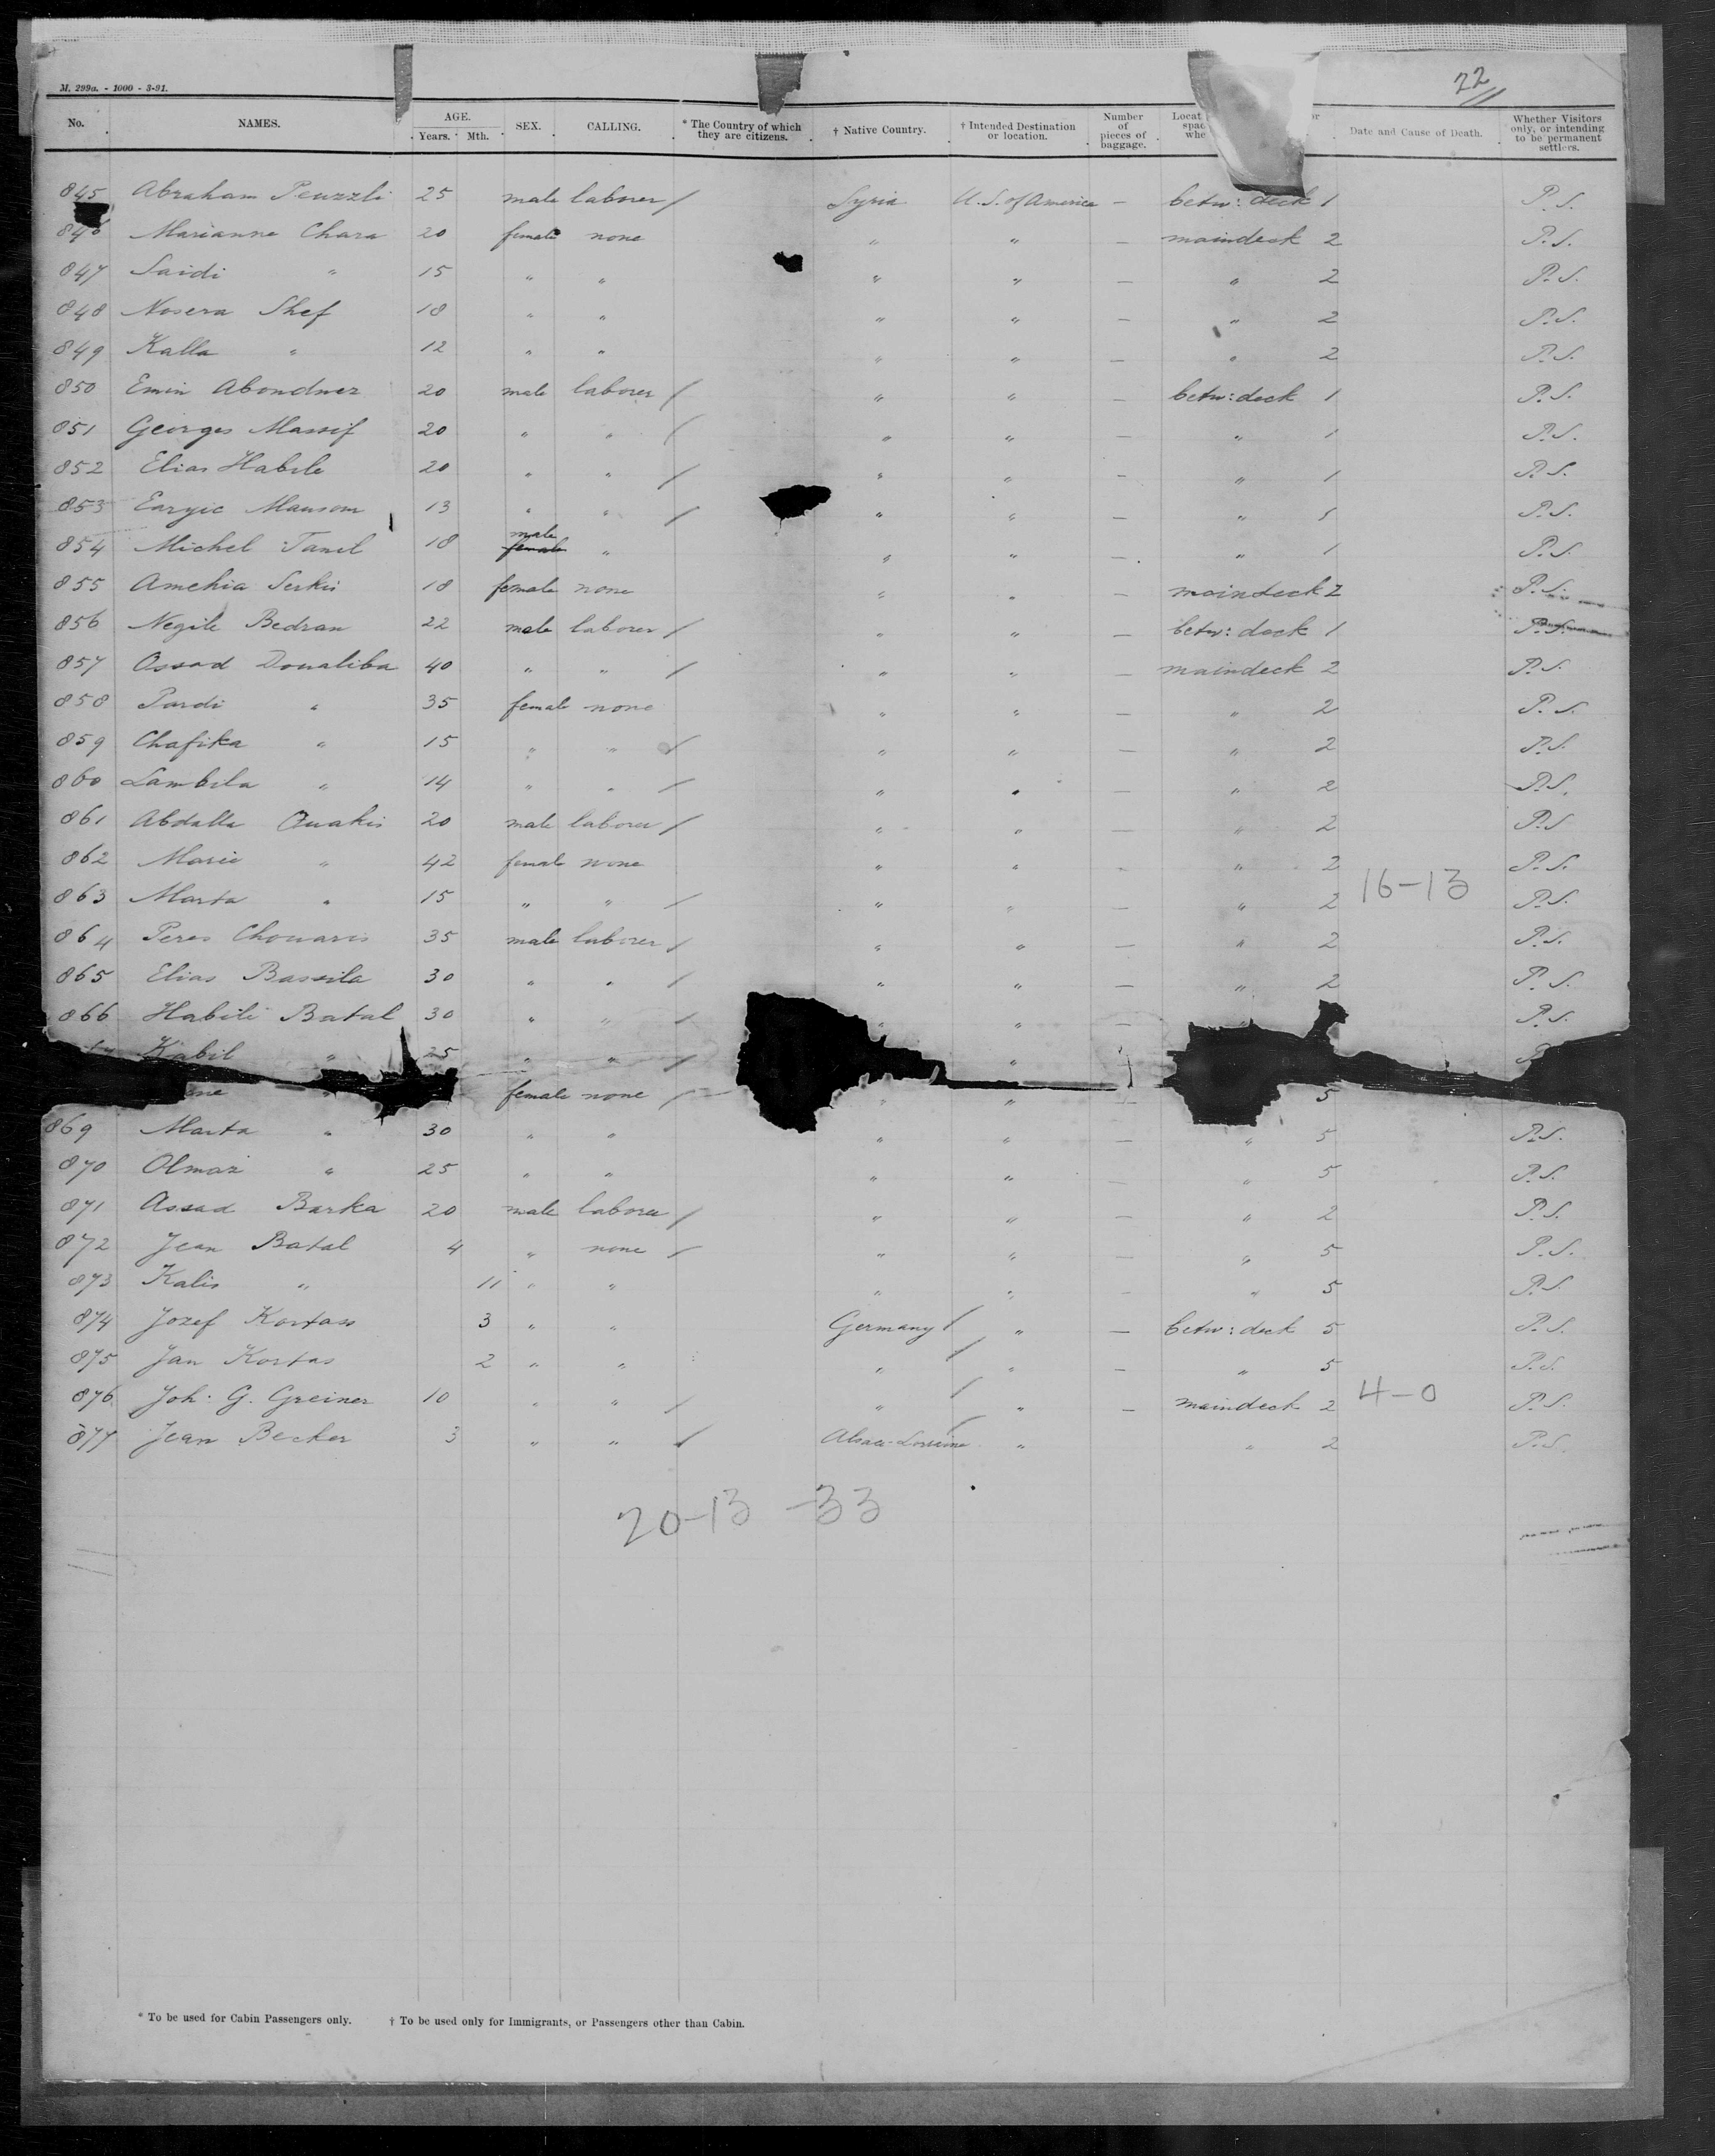 M. 299a. - 1000 - 3-91.
22
No. NAMES. AGE. Years. Mth. SEX. CALLING. * The Country of which they are citizens. † Native Country. † Intended Destination or location. Number of pieces of baggage. Locat spac whe or Date and Cause of Death. Whether Visitors only, or intending to be permanent settlers.
845 Abraham Peuzzli 25 male laborer / Syria U. S. of America — betw: deck 1 P. S.
846 Marianne Chara 20 female none " " — maindeck 2 P. S.
847 Saidi " 15 " " " " — " 2 P. S.
848 Nosera Shef 18 " " " " — " 2 P. S.
849 Kalla " 12 " " " " — " 2 P. S.
850 Emin Abondner 20 male laborer / " " — betw: deck 1 P. S.
851 Georges Massif 20 " " / " " — " 1 P. S.
852 Elias Habile 20 " " / " " — " 1 P. S.
853 Mansom 13 " " / " " — " 1 P. S.
854 Michel Tanil 18 male female " " " — " 1 P. S.
855 Amehia Serkis 18 female none " " — maindeck 2 P. S.
856 Negile Bedran 22 male laborer / " " — betw: deck 1 P. S.
857 Assad Doualiba 40 " " / " " — maindeck 2 P. S.
858 Pardi " 35 female none " " — " 2 P. S.
859 Chafika " 15 " " / " " — " 2 P. S.
860 Lambila " 14 " " / " " — " 2 P. S.
861 Abdalla Ouakis 20 male laborer / " " — " 2 P. S
862 Marie " 42 female none " " — " 2 P. S.
16-13
863 Marta " 15 " " / " " — " 2 P. S.
864 Peres Chouaris 35 male laborer / " " — " 2 P. S.
865 Elias Bassila 30 " " / " " — " 2 P. S.
866 Habili Batal 30 " " / " " — P. S.
Kabil " 25 " " / "
ene " female none / " " — 5
869 Marta " 30 " " " " — " 5 P. S.
870 Olmaz " 25 " " " " — " 5 P. S.
871 Assad Barka 20 male laborer / " " — " 2 P. S.
872 Jean Batal 4 " none / " " — " 5 P. S.
873 Kalis " 11 " " " " — " 5 P. S.
874 Jozef Kortass 3 " " Germany / " — betw: deck 5 P. S.
875 Jan Kortas 2 " " " / " — " 5 P. S.
876 Joh. G. Greiner 10 " " / " / " — maindeck 2 4-0 P. S.
877 Jean Becker 3 " " / Alsace-Lorraine " " 2 P. S.
20-13 -33
* To be used for Cabin Passengers only. † To be used only for Immigrants, or Passengers other than Cabin.